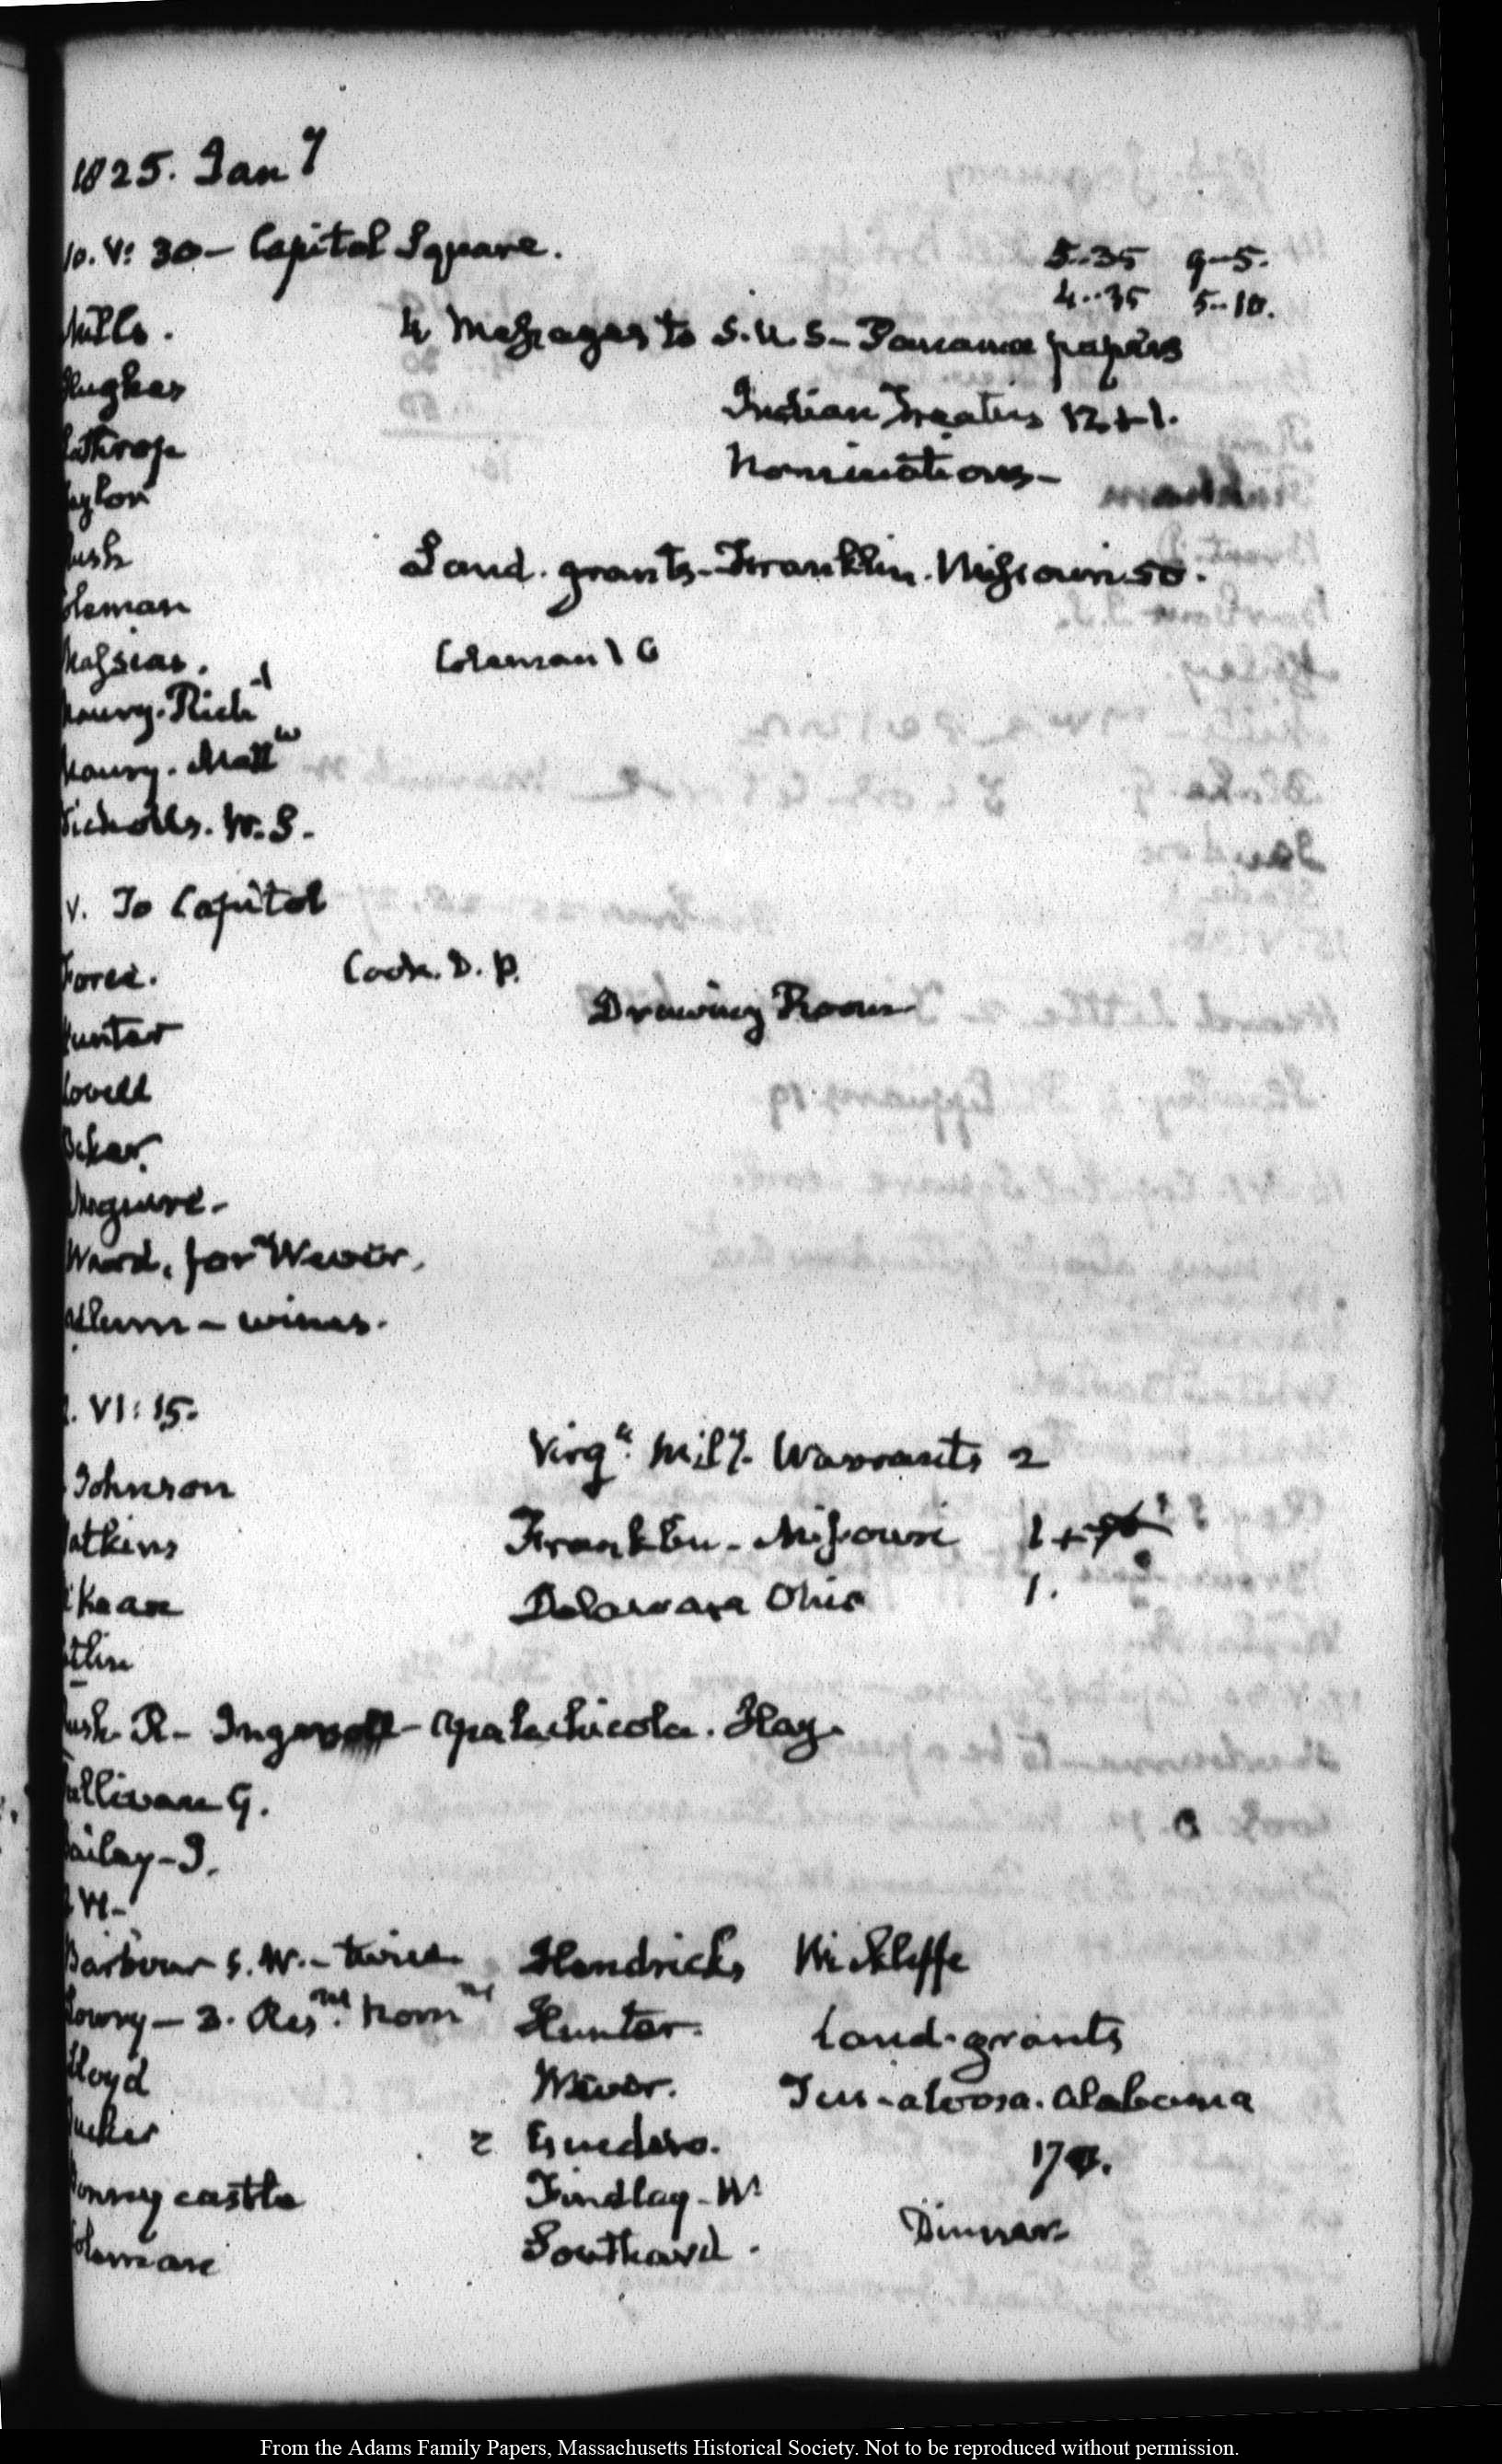 1825. Jany
10. V: 30 - Capitol Square.
5..35 9-5.
4..35 5-10.
Mills.
4 Messages to S.U.S - Panama papers
Hughes
Indian Treaties 12 + 1.
Lathrop
Nominations -
aylor
ush
Land. grants - Franklin. Missouri 50.
oleman
Massias.
Coleman
Maury. Richd
Maury. Mattw
Nicholls. W. S.
V. To Capitol
Force.
Cook. D. P.
Drawing Room
unter
Lovell
Baker.
Ward, for Wever.
dlum - wines.
. VI: 15.
Virga. Mily. Warrants 2
Johnson
Franklin - Missouri 1 +
atkins
Delaware Ohio 1.
Kean
atlin
ush R - Ingersoll - Apalachicola. Hay.
ullivan G.
ailey - J.
VI -
Barbour S. W. - twice
Hendricks Wickliffe
Lowry - 3. Resns. Nomns
Hunter. Land-grants
Lloyd
Wever. Tus-aloosa. Alabama
ucker
2 17
onnycastle
Findlay - Wm
Dinner
oleman
Southard.
From the Adams Family Papers, Massachusetts Historical Society. Not to be reproduced without permission.